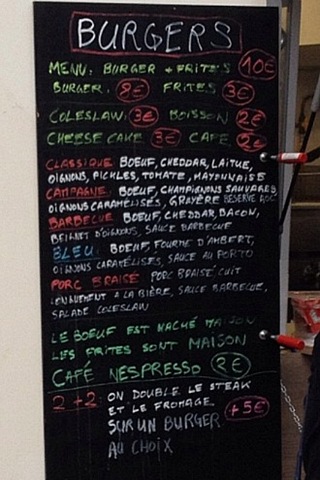 BURGERS
MENU: BURGER + FRITES 10€
BURGER. 8€ FRITES 3€
COLESLAW. 3€ BOISSON 2€
CHEESE CAKE 3€ CAFE 2€
CLASSIQUE: BOEUF, CHEDDAR, LAITUE,
OIGNONS, PICKLES, TOMATE, MAYONNAISE
CAMPAGNE: BOEUF, CHAMPIGNONS SAUVAGES,
OIGNONS CARAMÉLISÉS, GRUYÈRE RÉSERVE AOC
BARBECUE: BOEUF, CHEDDAR, BACON,
BEIGNET D'OIGNONS, SAUCE BARBECUE
BLEU: BOEUF, FOURME D'AMBERT,
OIGNONS CARAMÉLISÉS, SAUCE AU PORTO
PORC BRAISÉ: PORC BRAISÉ, CUIT
LENTEMENT A LA BIÈRE, SAUCE BARBECUE,
SALADE COLESLAW
LE BOEUF EST HACHÉ MAISON
LES FRITES SONT MAISON
CAFÉ NESPRESSO 2€
2+2: ON DOUBLE LE STEAK
ET LE FROMAGE +5€
SUR UN BURGER
AU CHOIX